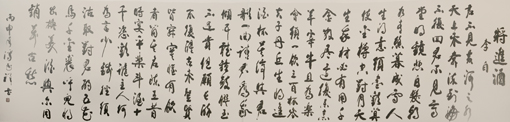 將進酒
李白
君不見黃河之水
天上來奔流到海
不復回君不見高
堂明鏡悲白髮朝
如青絲暮成雪人
生得意須盡歡莫
使金樽空對月天
生我材必有用千
金散盡還復來烹
羊宰牛且為樂
會須一飲三百杯岑
夫子丹丘生將進
酒杯莫停與君
歌一曲請君為我
傾耳聽鐘鼓饌玉
不足貴但願長醉
不復醒古來聖賢
皆寂寞惟有飲
者留其名陳王昔
時宴平樂斗酒十
千恣歡謔主人何
為言少錢徑須
沽取對君酌五花
馬千金裘呼兒將
出換美酒與爾同
銷萬古愁
丙申